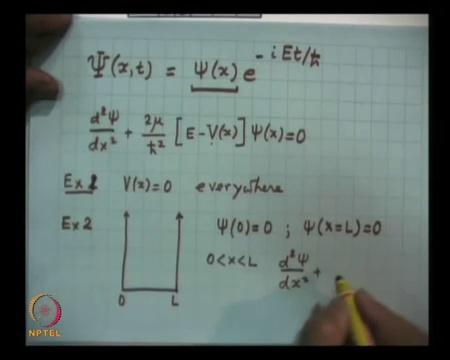 Ψ(x,t) = ψ(x) e^{-iEt/ħ}
d²ψ/dx² + 2μ/ħ² [E - V(x)] ψ(x) = 0
Ex 1 V(x) = 0 everywhere
Ex 2 ψ(0) = 0 ; ψ(x = L) = 0
0 < x < L d²ψ/dx² +
0 L
NPTEL